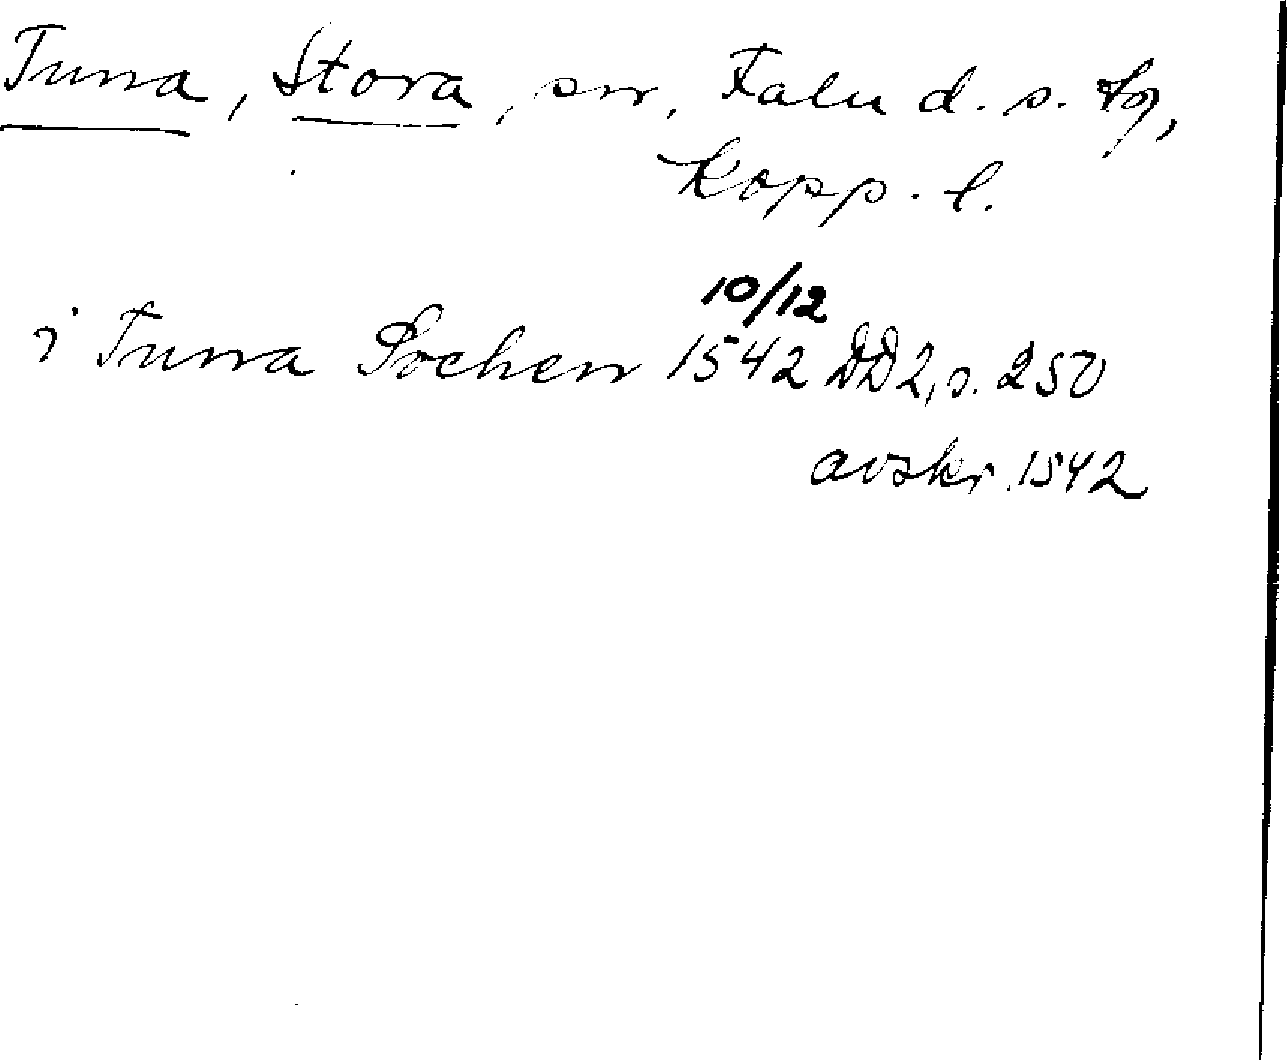 Tuna, Stora, sn, Falu d. s. tg,
Kopp. l.
10/12
i Tuna Sochen 1542 DD2, s. 250
avskr. 1542